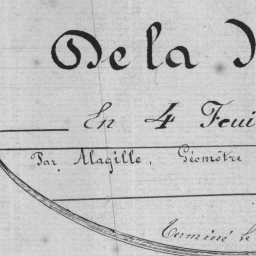 De la
En 4 Feui
Par Alagille, Géomêtre
Terminé le